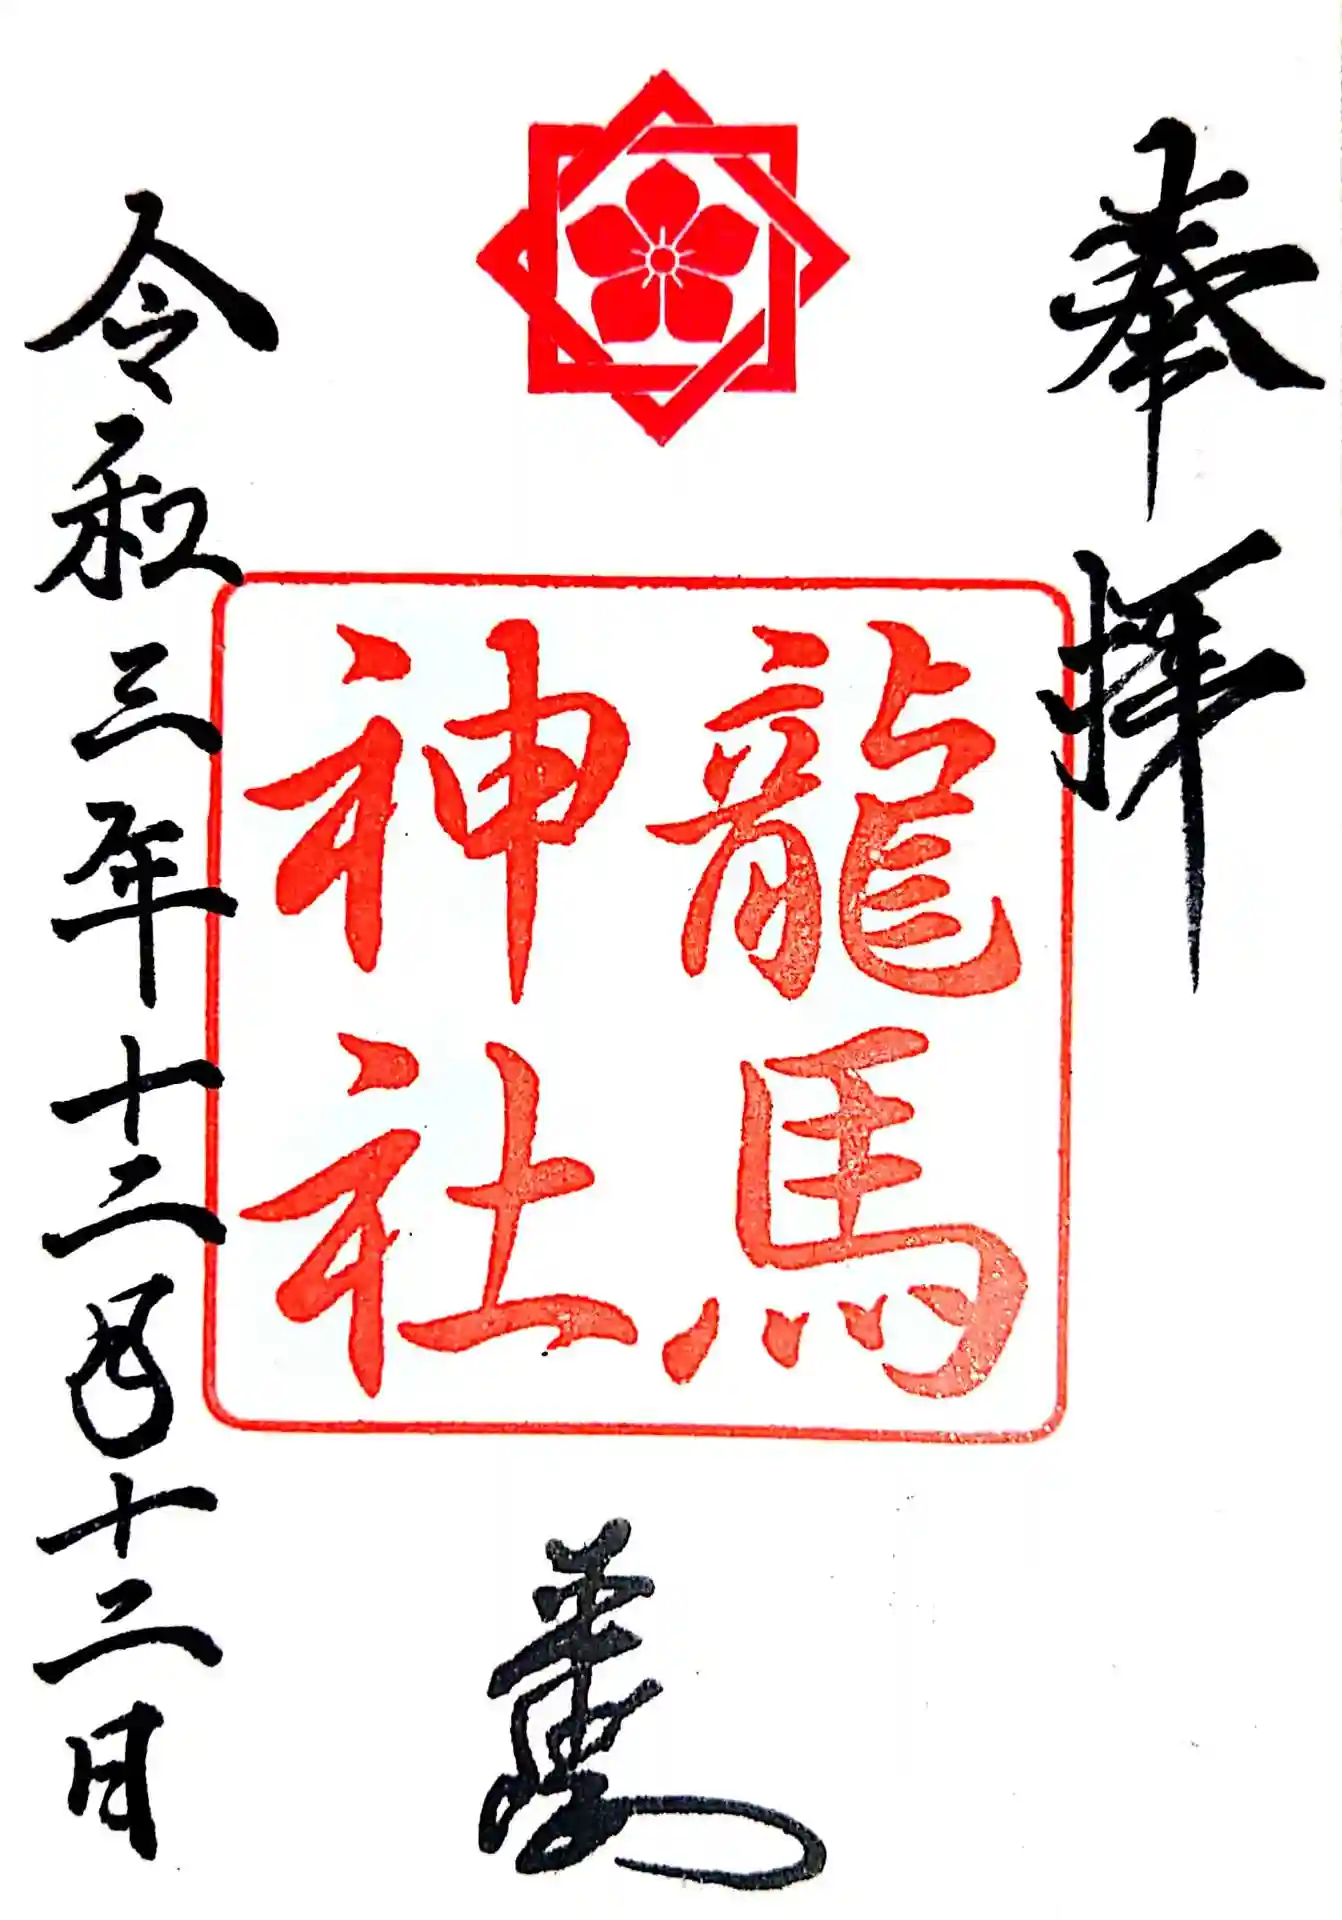 奉拝
龍馬
神社
令和三年十二月十二日